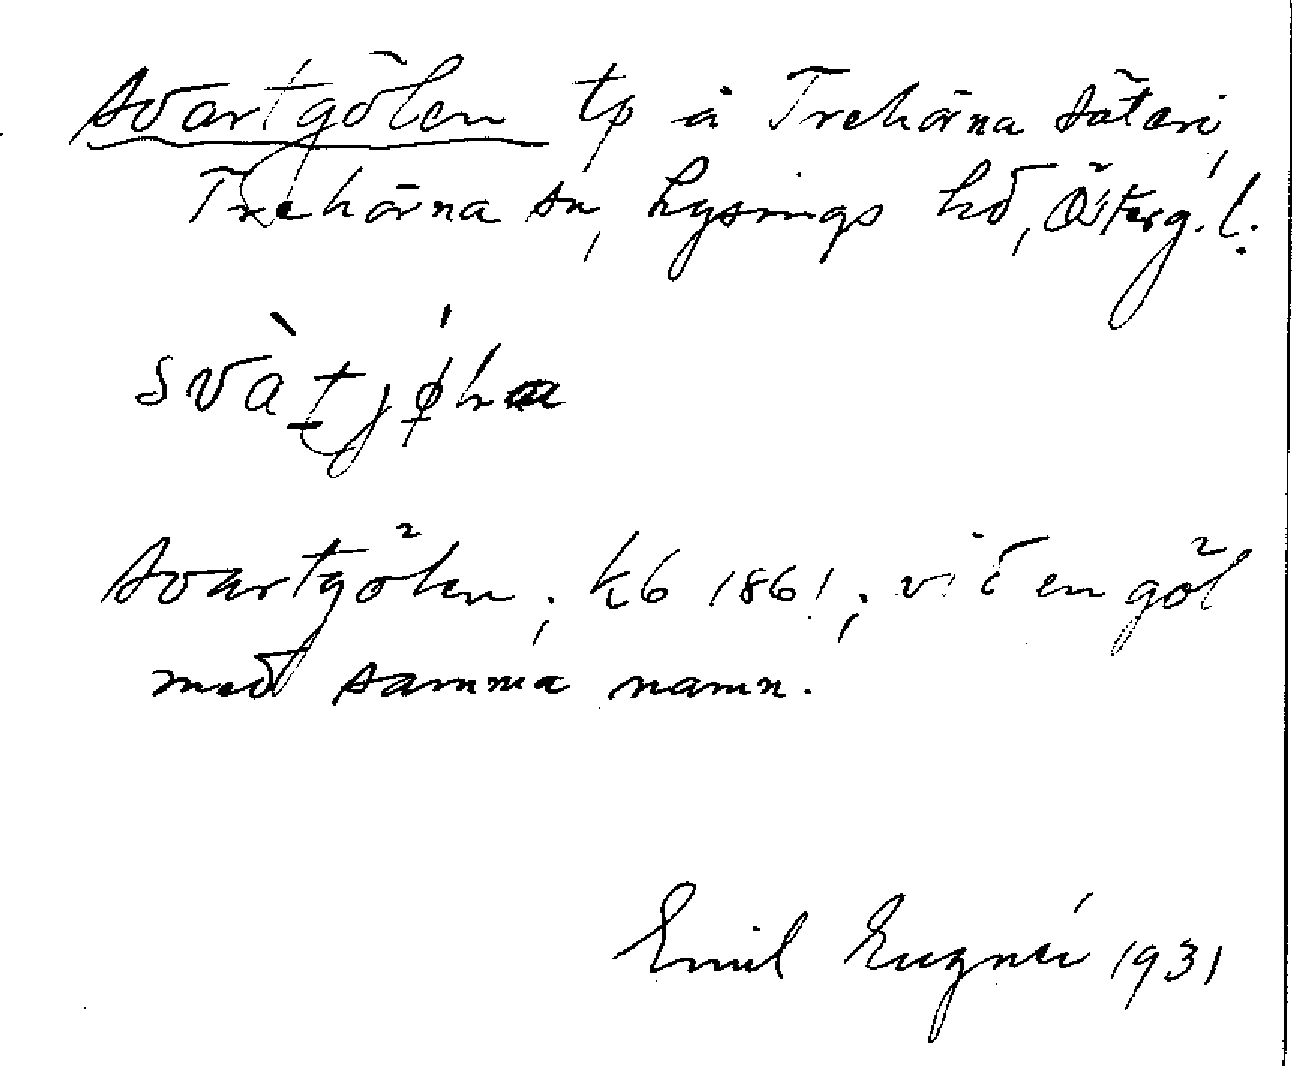 Svartgölen tp å Trehörna säteri,
Trehörna sn, Lysings hd, Österg. l.
Svartgölen; kb 1861; vid en göl
med samma namn.
Emil 1931